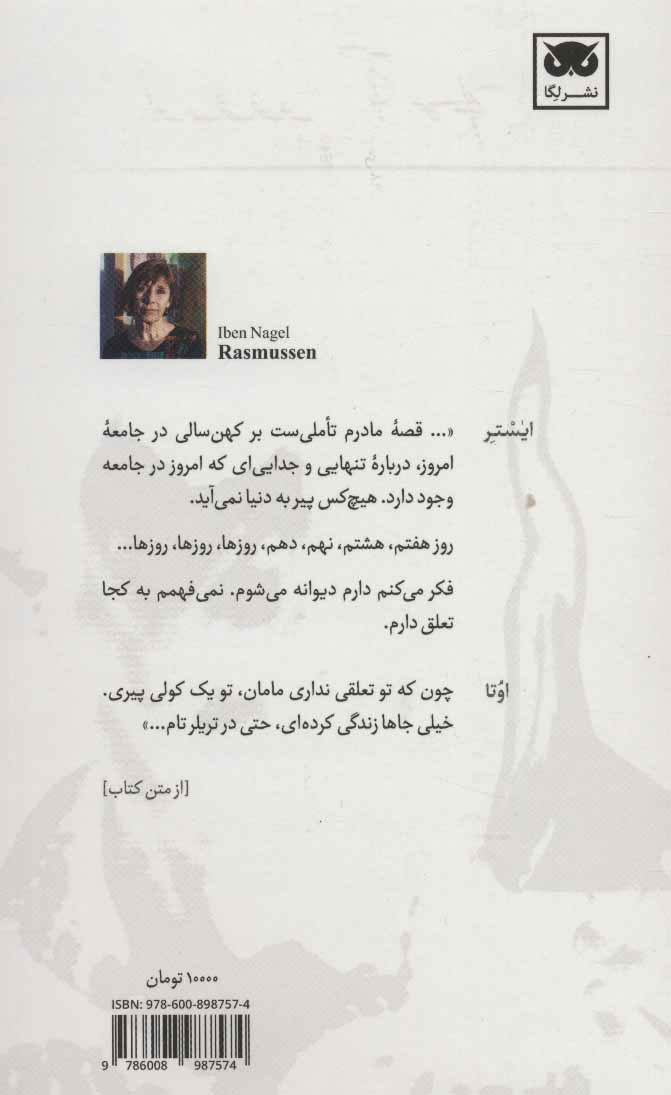 نشر لِگا
Iben Nagel
Rasmussen
ایسْتِر «... قصهٔ مادرم تأملی‌ست بر کهن‌سالی در جامعهٔ
امروز، دربارهٔ تنهایی و جدایی‌ای که امروز در جامعه
وجود دارد. هیچ‌کس پیر به دنیا نمی‌آید.
روز هفتم، هشتم، نهم، دهم، روزها، روزها، روزها...
فکر می‌کنم دارم دیوانه می‌شوم. نمی‌فهمم به کجا
تعلق دارم.
اوُتا چون که تو تعلقی نداری مامان، تو یک کولی پیری.
خیلی جاها زندگی کرده‌ای، حتی در تریلر تام...»
[از متن کتاب]
۱۰۰۰۰ تومان
ISBN: 978-600-898757-4
9 786008 987574